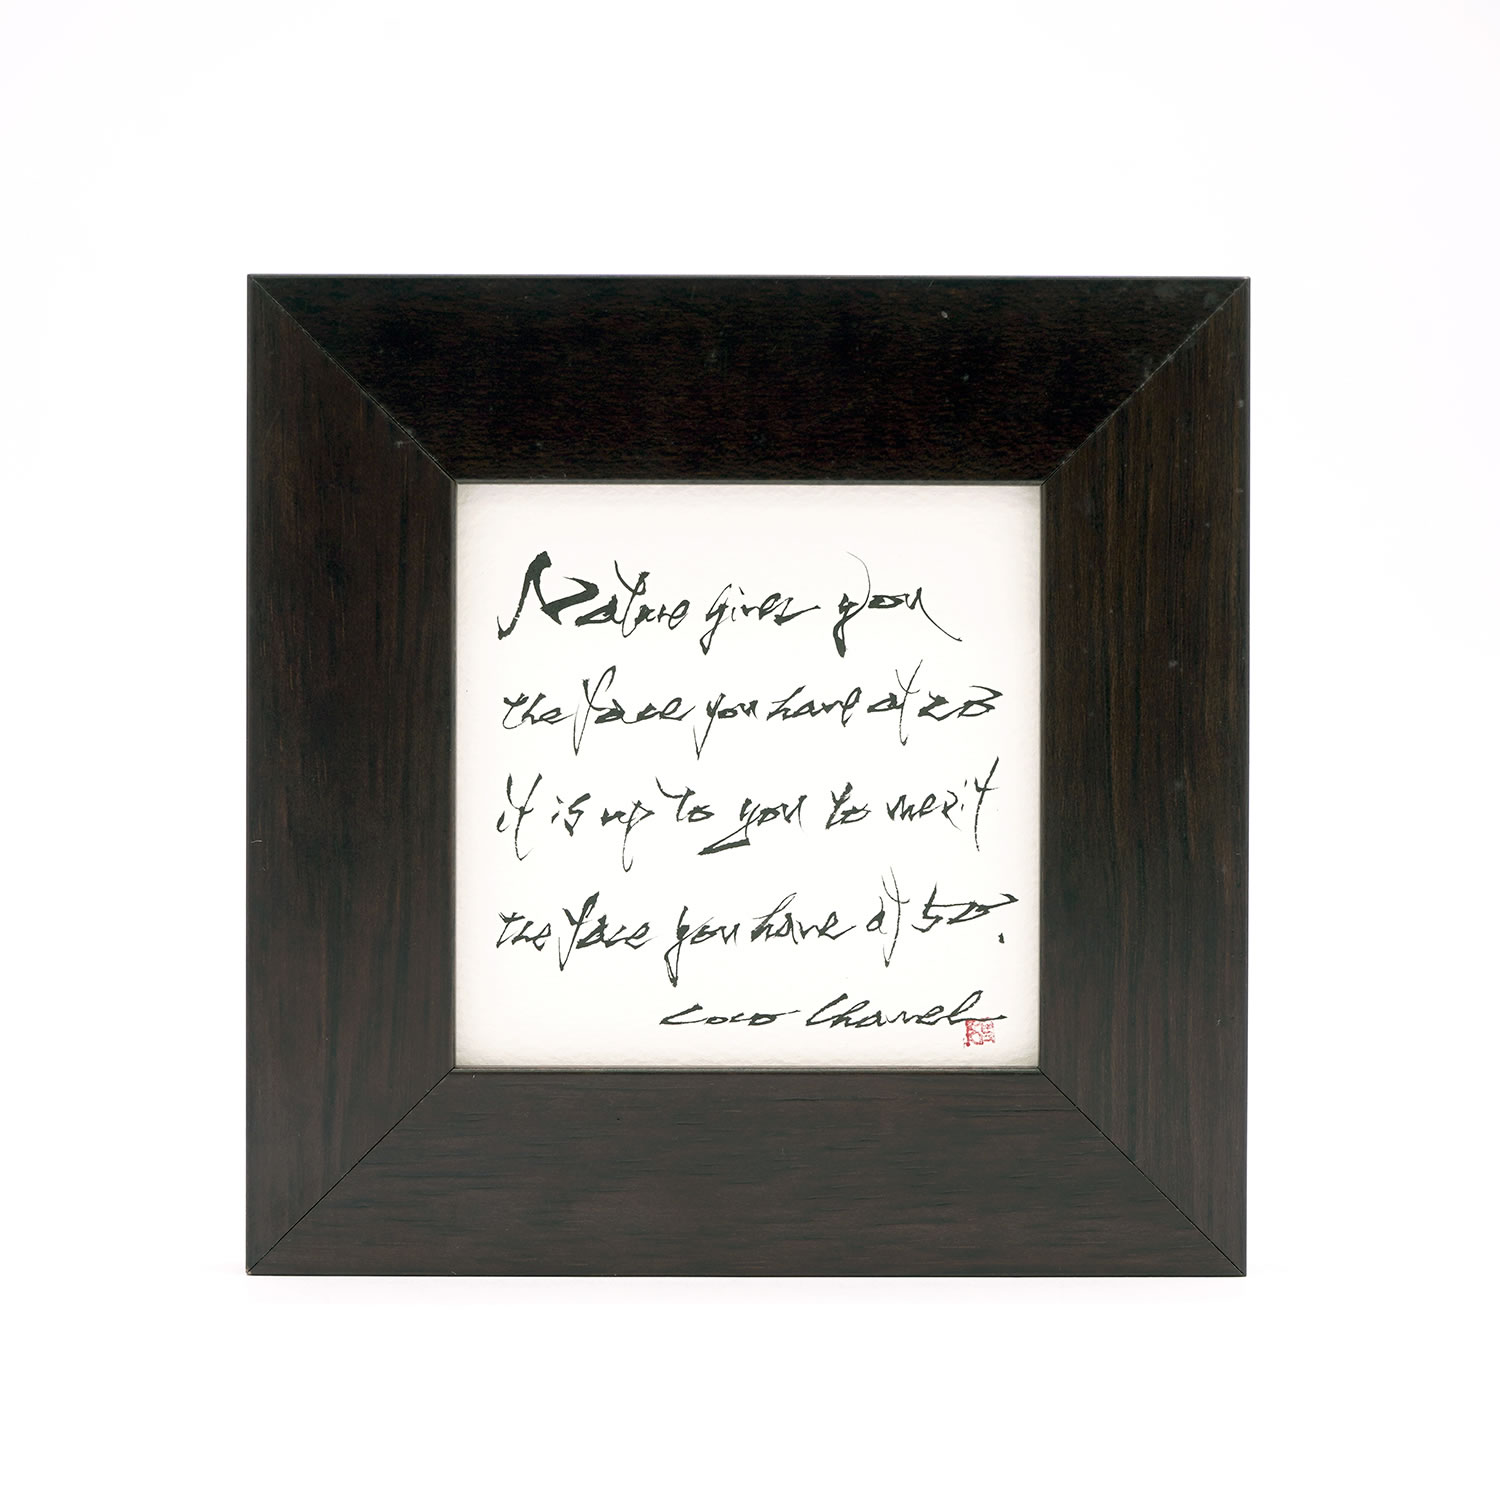 Nature gives you
the face you have at 20
it is up to you to merit
the face you have at 50.
Coco Chanel